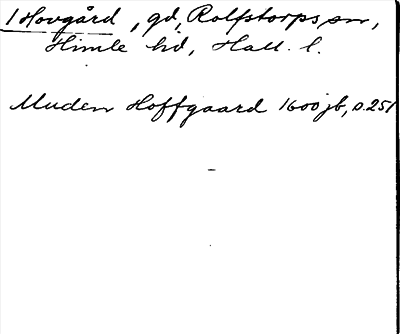 1 Hovgård, gd, Rolfstorps sn,
Himle hd, Hall. l.
Muden Hoffgaard 1600 jb, s. 251